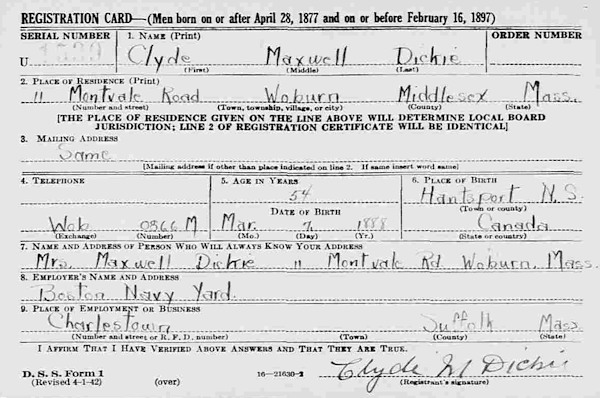 REGISTRATION CARD—(Men born on or after April 28, 1877 and on or before February 16, 1897)
SERIAL NUMBER 1. NAME (Print) ORDER NUMBER
U Clyde Maxwell Dickie
(First) (Middle) (Last)
2. PLACE OF RESIDENCE (Print)
11 Montvale Road Woburn Middlesex Mass.
(Number and street) (Town, township, village, or city) (County) (State)
[THE PLACE OF RESIDENCE GIVEN ON THE LINE ABOVE WILL DETERMINE LOCAL BOARD
JURISDICTION; LINE 2 OF REGISTRATION CERTIFICATE WILL BE IDENTICAL]
3. MAILING ADDRESS
Same
[Mailing address if other than place indicated on line 2. If same insert word same]
4. TELEPHONE 5. AGE IN YEARS 6. PLACE OF BIRTH
54 Hantsport N.S.
DATE OF BIRTH (Town or county)
Wob 0566 M Mar. 7, 1888 Canada
(Exchange) (Number) (Mo.) (Day) (Yr.) (State or country)
7. NAME AND ADDRESS OF PERSON WHO WILL ALWAYS KNOW YOUR ADDRESS
Mrs. Maxwell Dickie 11 Montvale Rd. Woburn, Mass.
8. EMPLOYER'S NAME AND ADDRESS
Boston Navy Yard.
9. PLACE OF EMPLOYMENT OR BUSINESS
Charlestown Suffolk Mass.
(Number and street or R. F. D. number) (Town) (County) (State)
I AFFIRM THAT I HAVE VERIFIED ABOVE ANSWERS AND THAT THEY ARE TRUE.
D. S. S. Form 1
(Revised 4-1-42) (over) 16—21630-2 Clyde M Dickie
(Registrant's signature)